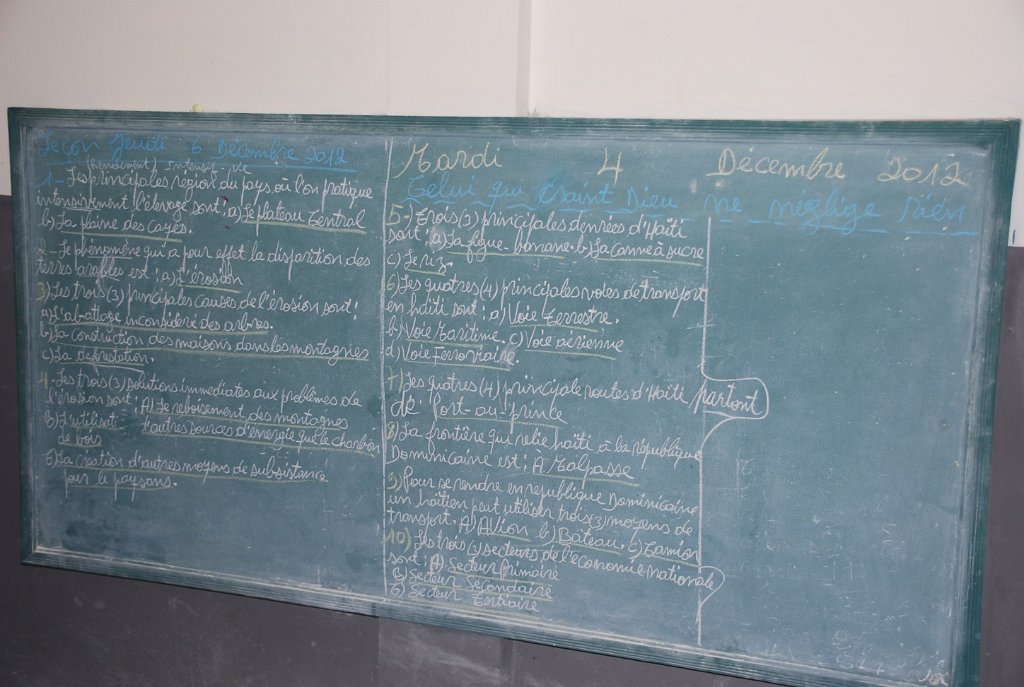 Leçon Jeudi 6 Décembre 2012
(Rendement) Intensif, ve
1- Les principales région du pays où l'on pratique
intensivement l'élevage sont: a) Le plateau Central
b) La plaine des cayes.
2- Le phénomène qui a pour effet la disparition des
terres arables est: a) L'érosion
3) Les trois (3) principales causes de l'érosion sont:
a) L'abattage inconsidéré des arbres.
b) La construction des maisons dans les montagnes
c) La déforestation.
4- Les trois (3) solutions immediates aux problèmes de
l'érosion sont: A) Le reboisement des montagnes
b) L'utilisat- d'autres sources d'energie que le charbon
de bois
c) La création d'autres moyens de subsistance
pour le paysans.
Mardi 4 Décembre 2012
Celui qui Craint Dieu ne néglige Rien
5-) Trois (3) principales denrées d'Haïti
sont: a) La figue-banane. b) La canne à sucre
c) Le riz.
6) Les quatres (4) principales voies de transport
en haïti sont: a) Voie Terrestre.
b) Voie Maritime. c) Voie aérienne
d) Voie Ferroviaire.
7) Les quatres (4) principale routes d'Haïti partent
de Port-au-prince
8) La frontière qui relie haïti à la république
Dominicaine est: À Malpasse
9) Pour se rendre en republique Dominicaine
un haïtien peut utiliser trois (3) moyens de
transport: A) AVion b) Bateau. c) Camion
10) Les trois (3) secteurs de l'économie nationale
sont: A) Secteur Primaire
B) Secteur Secondaire
C) Secteur Tertiaire